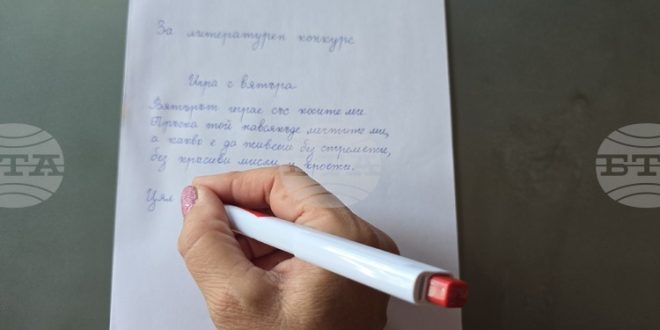 За литературен конкурс
Игра с вятъра
Вятърът играе със косите ми.
Пръска той навсякъде мечтите ми,
а какво е да живееш без стремежи,
без красиви мисли и
Цял
БТА
БТА